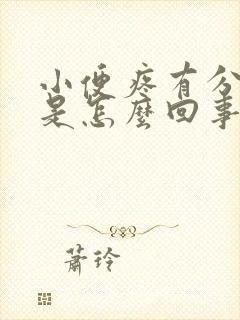 小便疼有分
是怎麼回事
蕭玲